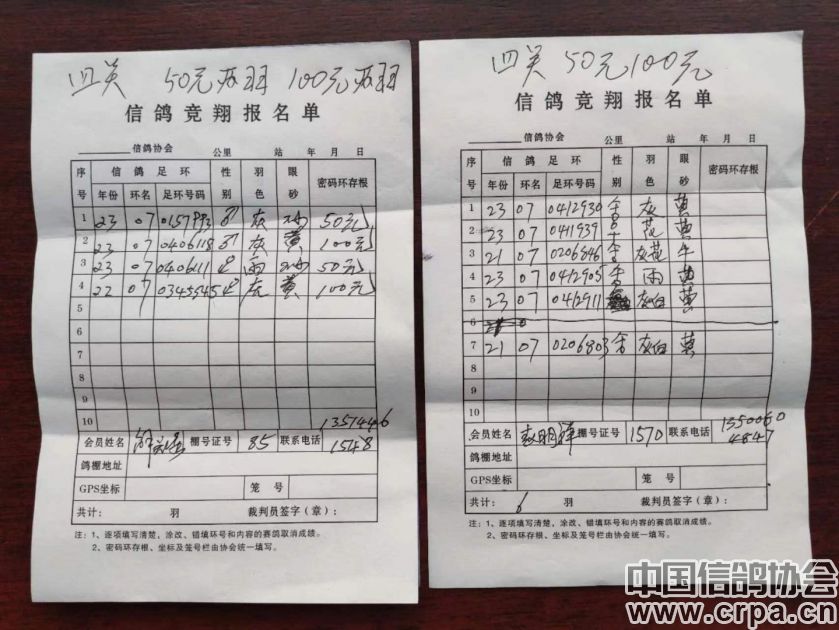 四关 50元两羽 100元两羽
信鸽竞翔报名单
信鸽协会 公里 站 年 月 日
序号 信鸽足环 性别 羽色 眼砂 密码环存根
年份 环名 足环号码
1 23 07 ♂ 灰 50元
2 23 07 0406118 ♂ 灰 黄 100元
3 23 07 0406111 雨 50元
4 22 07 0345545 灰 黄 100元
5
6
7
8
9
10
会员姓名 棚号证号 85 联系电话 1351446
1548
鸽棚地址
GPS坐标 笼号
共计: 羽 裁判员签字(章):
注:1、逐项填写清楚,涂改、错填环号和内容的赛鸽取消成绩。
2、密码环存根、坐标及笼号栏由协会统一填写。
四关 50元100元
信鸽竞翔报名单
信鸽协会 公里 站 年 月 日
序号 信鸽足环 性别 羽色 眼砂 密码环存根
年份 环名 足环号码
1 23 07 0412930 灰 黄
2 23 07 0411939 花 黄
3 21 07 0206846 灰花 牛
4 23 07 0412905 雨 黄
5 23 07 0412911 灰白 黄
6
7 21 07 0206803 灰白 黄
8
9
10
会员姓名 赵明祥 棚号证号 1570 联系电话 1350060
4847
鸽棚地址
GPS坐标 笼号
共计: 6 羽 裁判员签字(章):
注:1、逐项填写清楚,涂改、错填环号和内容的赛鸽取消成绩。
2、密码环存根、坐标及笼号栏由协会统一填写。
中国信鸽协会
www.crpa.cn